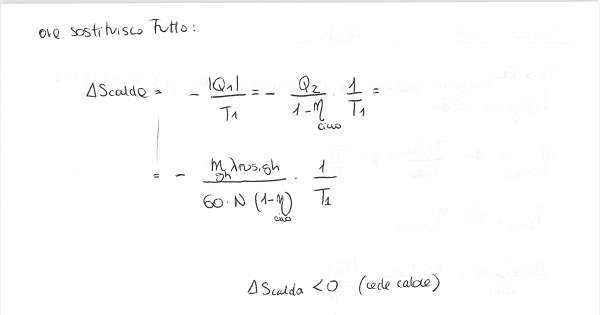 ora sostituisco Tutto:
ΔScalda = - |Q1| / T1 = - Q2 / (1-η ciclo) · 1 / T1 =
= - mgh λfus,gh / (60·N (1-η ciclo)) · 1 / T1
ΔScalda <0 (cede calore)